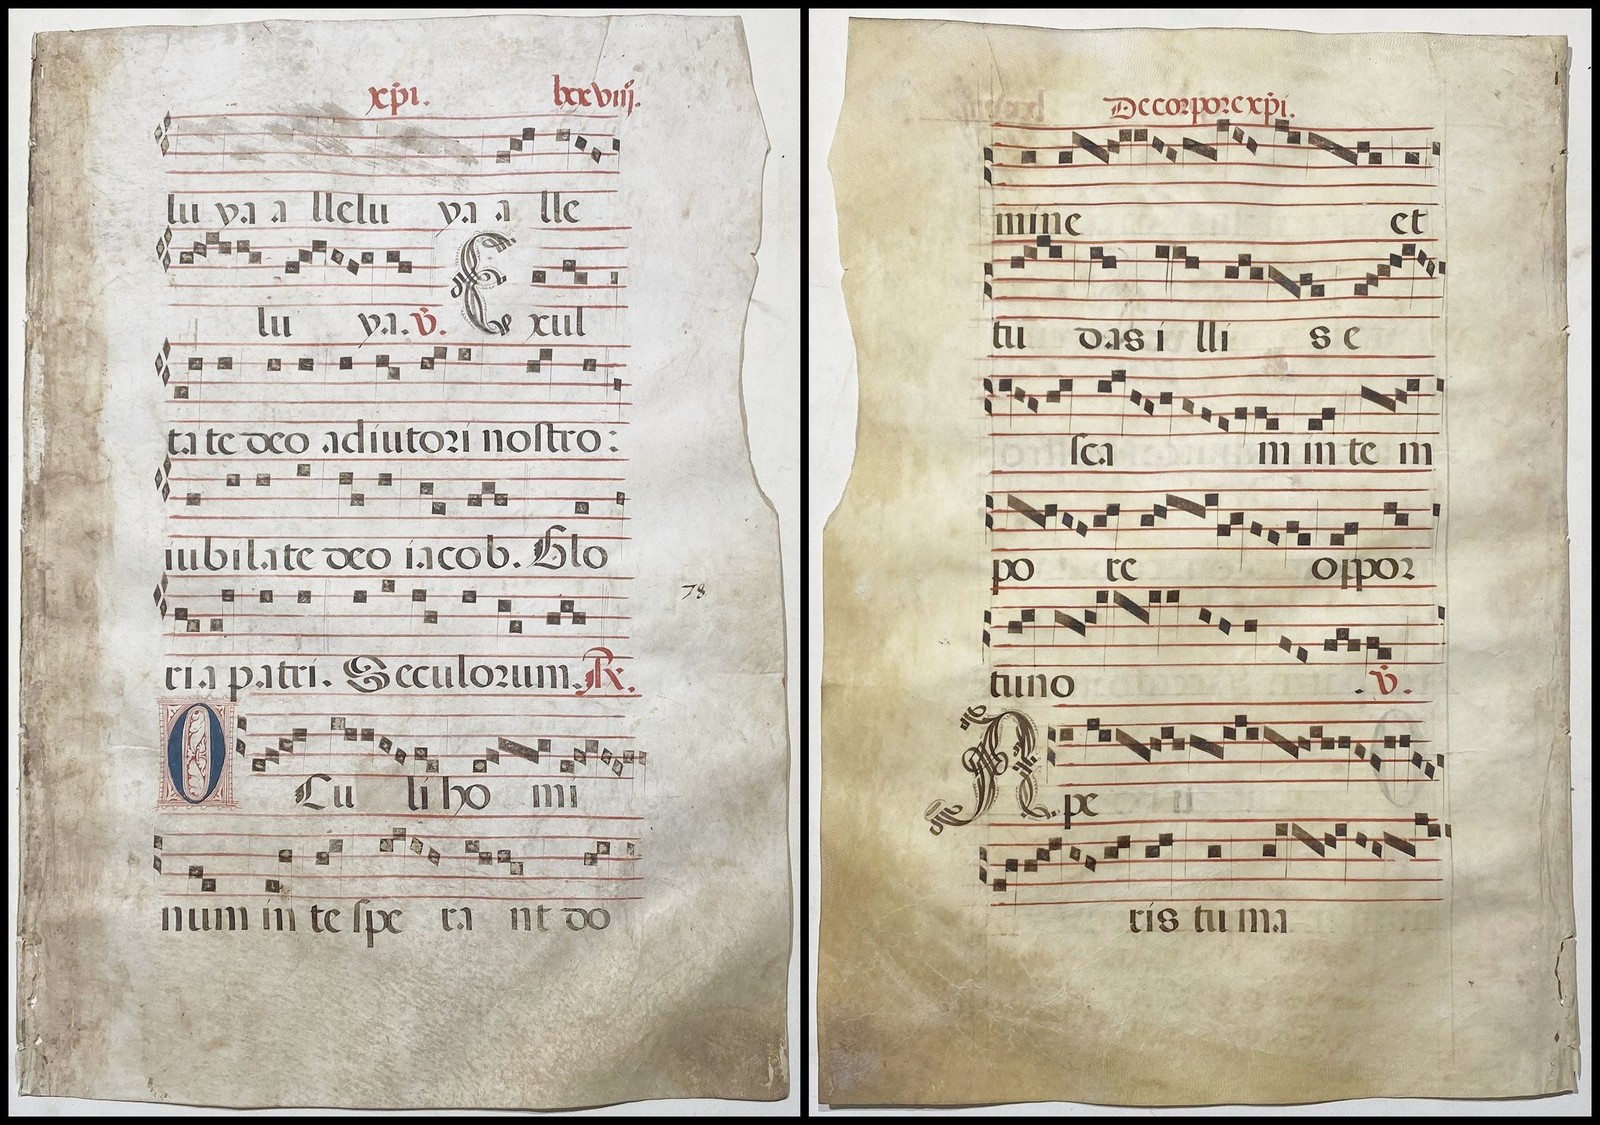 xp̄i. lxxviij.
lu ya a llelu ya a lle
lu ya. v̄. E exul
ta te deo adiutori nostro:
iubilate deo iacob. Glo
78
ria patri. Seculorum. R.
O Cu li ho mi
num in te spe ra nt do
De corpore xp̄i.
mine et
tu das i lli s e
sca m in te m
po re o ppor
tuno . v̄.
A pe
ris tu ma